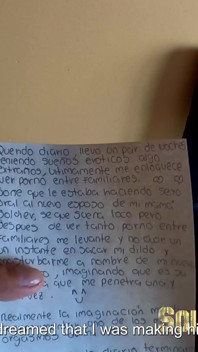 Querido diario, llevo un par de noches
teniendo sueños eroticos algo
extraños, ultimamente me enloquece
ver porno entre familiares.
que le estaba haciendo sexo
oral al nuevo esposo de mi mamá
se que suena loco pero
despues de ver tanto porno entre
familiares me levante y no dude un
un instante en sacar mi dildo y
a nombre de mi
, imaginando que es su
que me penetra una y
vez. ^.^
Realmente la imaginacion
de los
orgasmos
diario
SOL
dreamed that I was making hi